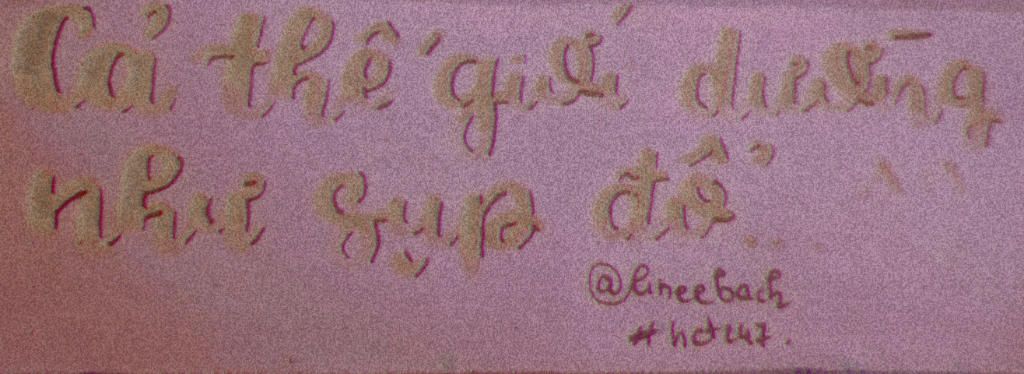 Cả thế giới dường
như sụp đổ...
@lineebach